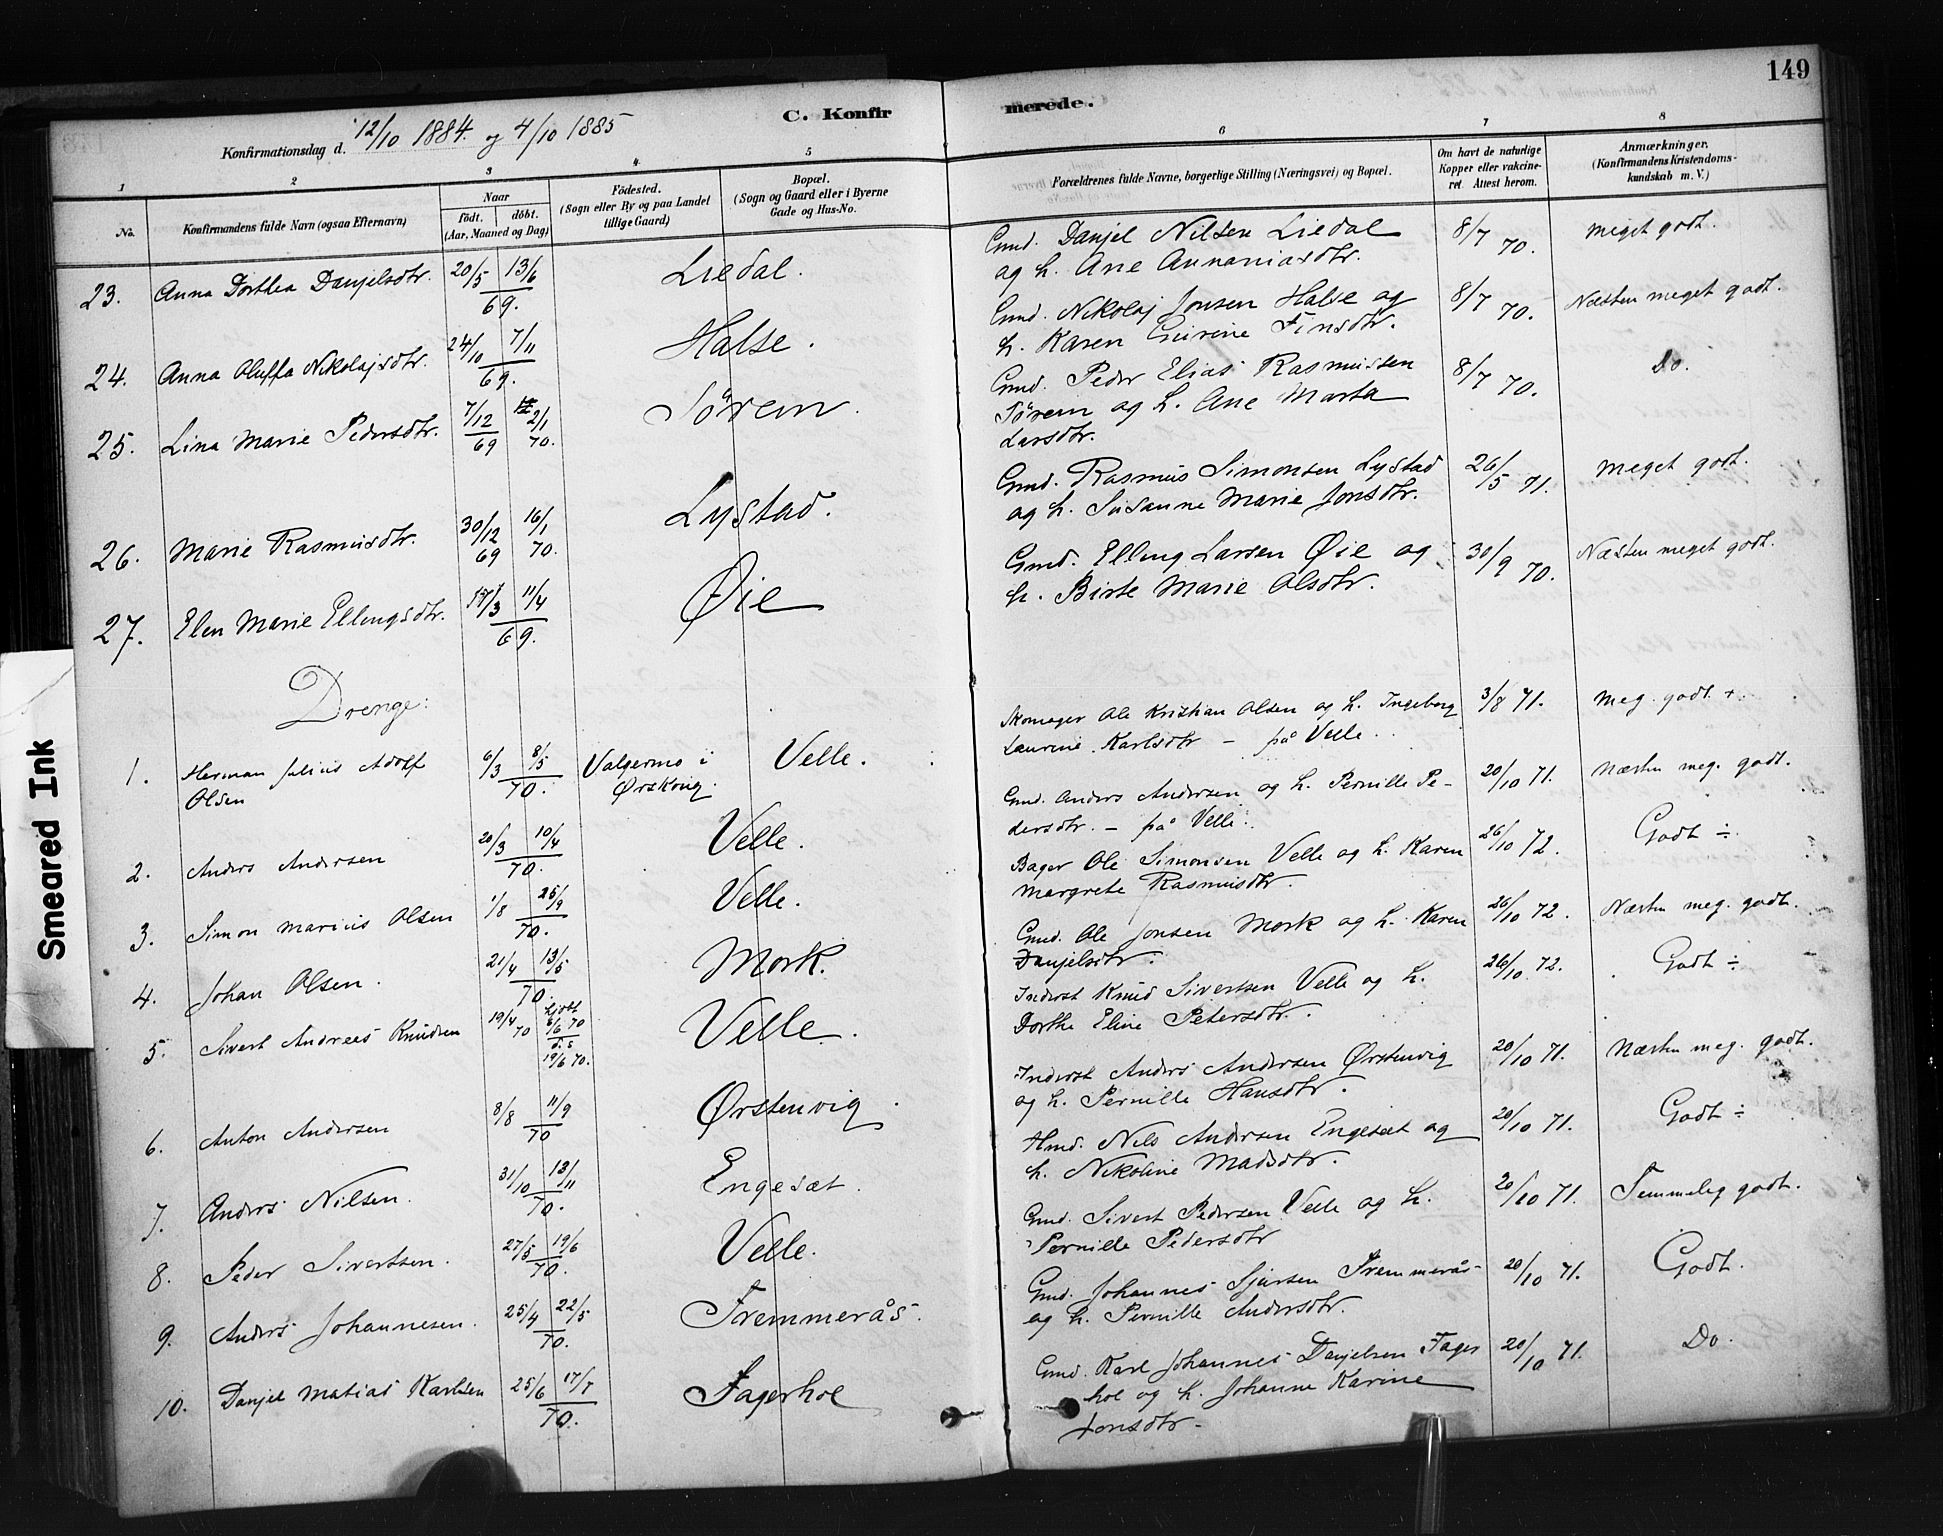 149
C. Konfirmerede.
Konfirmationsdag d. 12/10 1884. og 4/10 1885
1 2 3 4 5 6 7 8
No.
Konfirmandens fulde Navn (ogsaa Efternavn)
Naar
født. døbt.
(Aar, Maaned og Dag)
Fødested.
(Sogn eller By og paa Landet
tillige Gaard)
Bopæl.
(Sogn og Gaard eller i Byerne
Gade og Hus-No.
Forældrenes fulde Navne, borgerlige Stilling (Næringsvei) og Bopæl.
Om havt de naturlige
Kopper eller vakcine-
ret. Attest herom.
Anmærkninger.
(Konfirmandens Kristendoms-
kundskab m. V.)
23. Anna Dorthea Danjelsdtr. 20/5 13/6 69. Liedal. Gmd. Danjel Nilsen Liedal 8/7 70. Meget godt.
og h. Ane Annaniasdtr.
24. Anna Oluffa Nikolajsdtr. 24/10 7/11 69. Halse. Gmd. Nikolaj Jonsen Halse og 8/7 70. Næsten meget godt.
h. Karen Gurine Finsdtr.
25. Lina Marie Pedersdtr. 7/12 69 2/1 70. Sørem. Gmd. Peder Elias Rasmussen 8/7 70. Do.
Sørem og h. Ane Marta
Larsdtr.
26. Marie Rasmusdtr. 30/12 69 16/1 70. Lystad. Gmd. Rasmus Simonsen Lystad 26/5 71. Meget godt.
og h. Susanne Marie Jonsdtr.
27. Elen Marie Ellingsdtr. 17/3 11/4 69. Øie Gmd. Elling Larsen Øie og 30/9 70. Næsten meget godt.
h. Birte Marie Olsdtr.
Drenge:
1. Herman Julius Adolf 6/3 8/5 70. Valgermo i Velle. Skomager Ole Kristian Olsen og h. Ingeborg 3/8 71. Meg. godt +.
Olsen Ørskoug. Laurine Karlsdtr – på Velle.
2. Anders Andersen 20/3 10/4 70. Velle. Gmd. Anders Andersen og h. Pernille Pe- 20/10 71. Næsten meg. godt.
dersdtr. – på Velle.
3. Simon Marius Olsen 1/8 25/9 70. Velle. Bager Ole Simonsen Velle og h. Karen 26/10 72. Godt ÷.
Margrete Rasmusdtr.
4. Johan Olsen. 21/4 13/5 70. Mork. Gmd. Ole Jonsen Mork og h. Karen 26/10 72. Næsten meg. godt.
Danjelsdtr.
5. Sivert Andreas Knudsen 19/4 70 hjdbt 6/6 70 d. s 19/6 70. Velle. Inderst Knud Sivertsen Velle og h. 26/10 72. Godt ÷
Dorthe Eline Petersdtr.
6. Anton Andersen 8/8 11/9 70 Ørstenvig. Inderst Anders Andersen Ørstenvig 20/10 71. Næsten meg. godt.
og h. Pernille Hansdtr.
7. Anders Nilsen. 31/10 13/11 70. Engesæt. Hmd. Nils Andersen Engesæt og 20/10 71. Godt ÷
h. Nikoline Madsdtr.
8. Peder Sivertsen. 27/5 19/6 70. Velle. Gmd. Sivert Pedersen Velle og h. 20/10 71. Temmelig godt.
Pernille Pedersdtr
9. Anders Johannesen. 25/4 22/5 70. Fremmerås. Gmd. Johannes Sjursen Fremmerås 20/10 71. Godt.
og h. Pernille Andersdtr.
10. Danjel Matias Karlsen 25/6 17/7 70. Fagerhol Gmd. Karl Johannes Danjelsen Fager 20/10 71. Do.
hol og h. Johanne Karine
Jonsdtr.
Smeared Ink